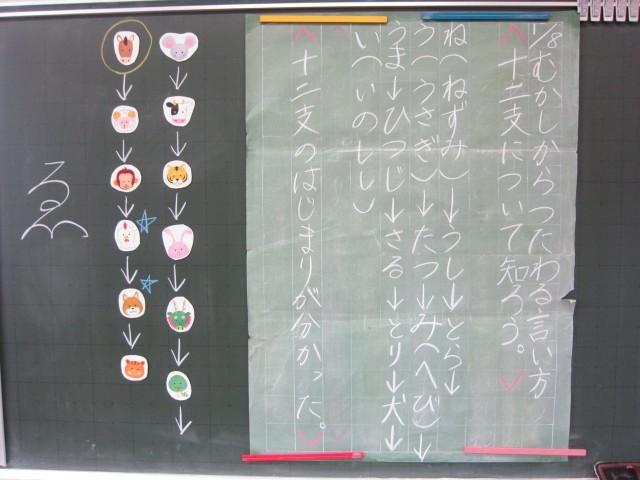 1/8むかしからつたわる言い方
十二支について知ろう。
ね(ねずみ)→うし→とら→
う(うさぎ)→たつ→み(へび)→
うま→ひつじ→さる→とり→犬→
い(いのしし)
十二支のはじまりが分かった。
ゑ